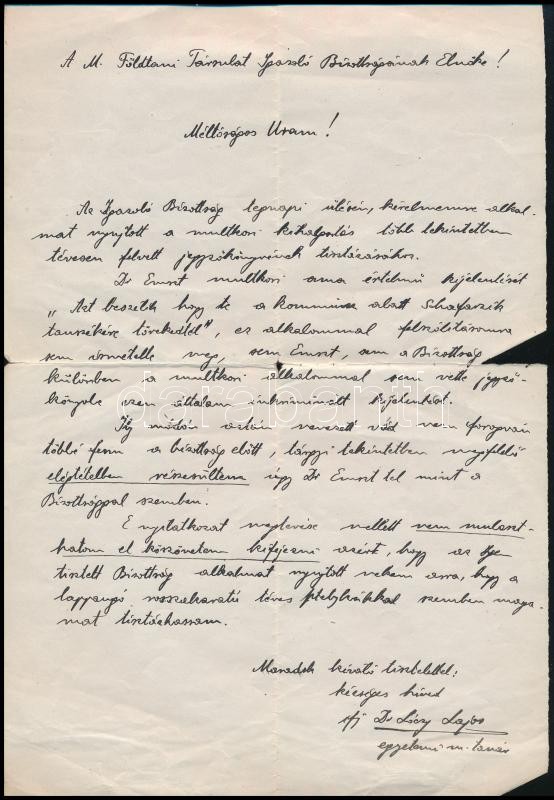 A M. Földtani Társulat Igazoló Bizottságának Elnöke!
Méltóságos Uram!
Az Igazoló Bizottság tegnapi ülésén, kérelmemre alkal-
mat nyujtott a multkori kihallgatás több tekintetben
tévesen felvett jegyzőkönyvének tisztázására.
Dr Ernszt multkori ama értelmű kijelentését
„Azt beszélték hogy te a kommün alatt Schafarzik
tanszékére törekedtél", ez alkalommal felszólításomra
sem ismételte meg, sem Ernszt, sem a Bizottság
különben a multkori alkalommal sem vette jegyző-
könyvbe ezen általam inkriminált kijelentést.
Ily módon aztán nevezett vád nem forogván
többé fenn a bizottság előtt, tárgyi tekintetben megfelelő
elégtételben részesültem úgy Dr Ernszttel mint a
Bizottsággal szemben.
E nyilatkozat megtevése mellett nem mulaszt-
hatom el köszönetem kifejezni azért, hogy az Ige
tisztelt Bizottság alkalmat nyujtott nekem arra, hogy a
lappangó rosszakaratú téves pletykákkal szemben maga-
mat tisztázhassam.
Maradok kiváló tisztelettel:
készséges híved
ifj Dr Lóczy Lajos
egyetemi m. tanár
darabanth